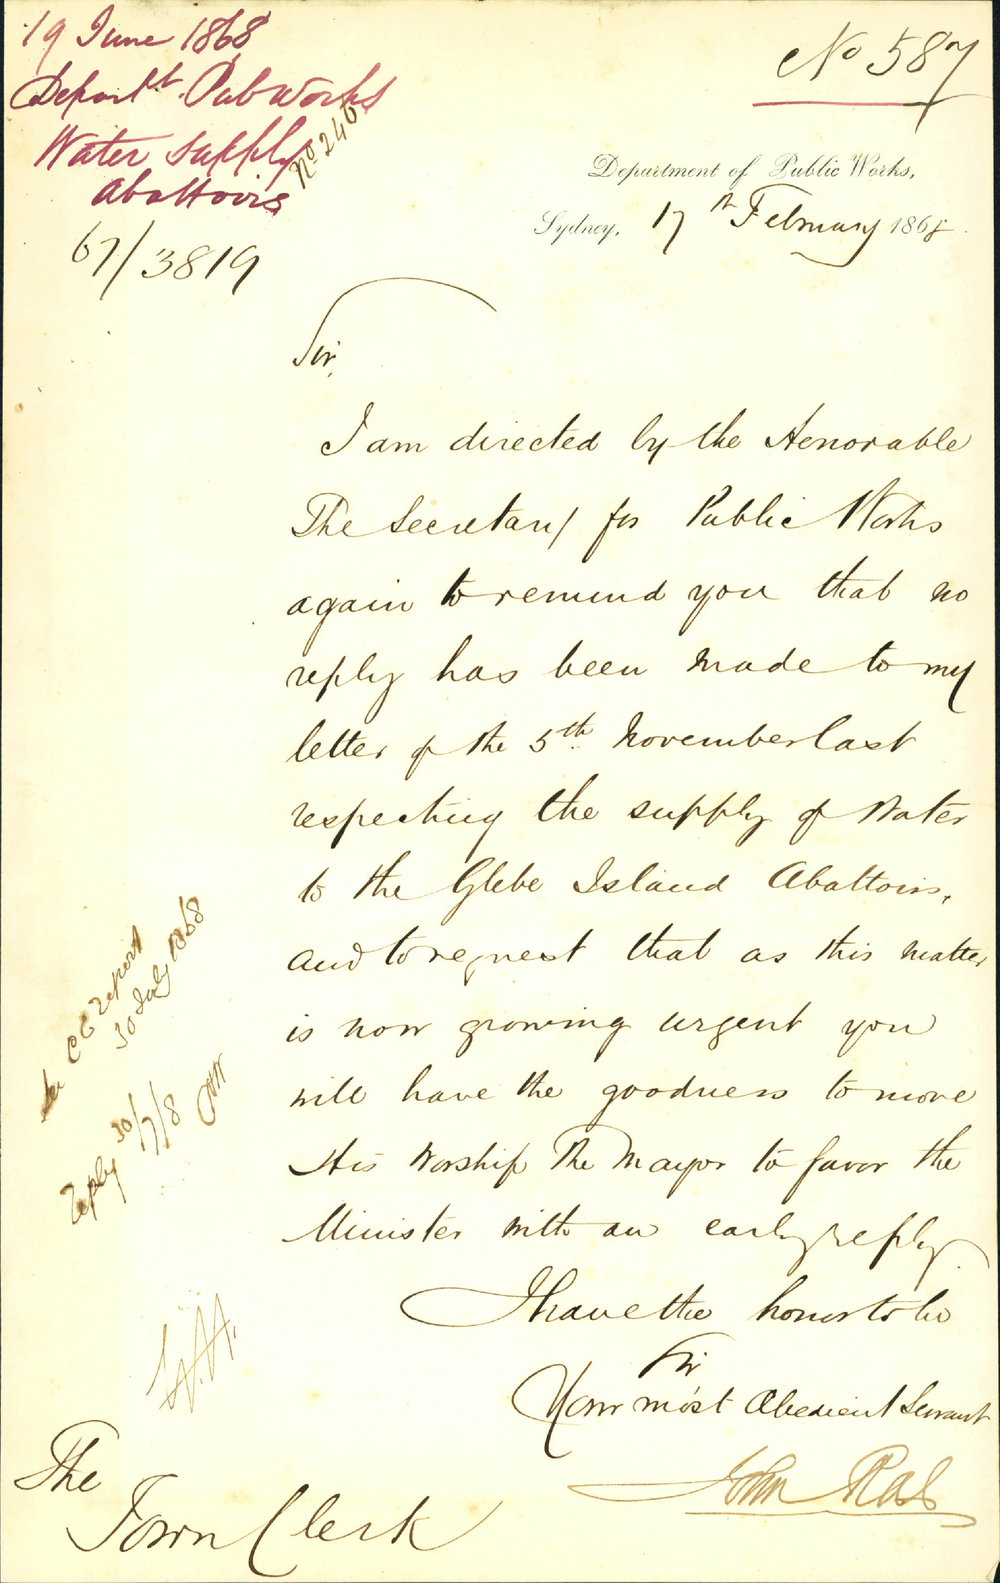 19 June 1868
Depart^t Pub Works
Water supply
Abattoirs
No 246
67/3819
No 587
Department of Public Works,
Sydney, 17th February 1868.
Sir,
I am directed by the Honorable
The Secretary for Public Works
again to remind you that no
reply has been made to my
letter of the 5th November last
respecting the supply of Water
to the Glebe Island Abattoirs,
and to request that as this matter
is now growing urgent you
will have the goodness to move
His Worship The Mayor to favor the
Minister with an early reply.
I have the honor to be
Sir
Your most Obedient Servant
John Rae
CE report
30 July 1868
Reply 30/7/8
The
Town Clerk